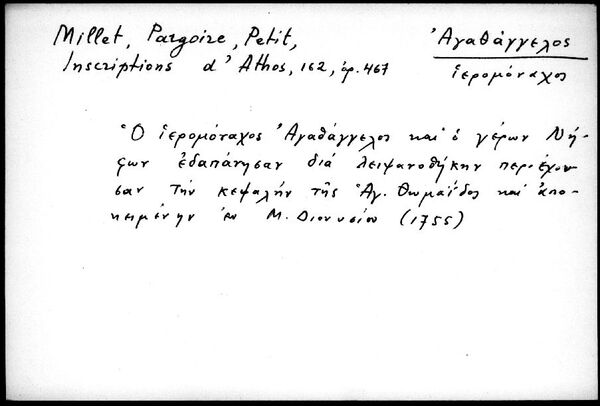 Millet, Pargoire, Petit,
Inscriptions d'Athos, 162, ἀρ. 467
Ἀγαθάγγελος
ἱερομόναχος
Ὁ ἱερομόναχος Ἀγαθάγγελος καὶ ὁ γέρων Νή-
φων ἐδαπάνησαν διὰ λειψανοθήκην περιέχου-
σαν τὴν κεφαλὴν τῆς Ἁγ. Θωμαΐδος καὶ ἀπο-
κειμένην ἐν Μ. Διονυσίου (1755)